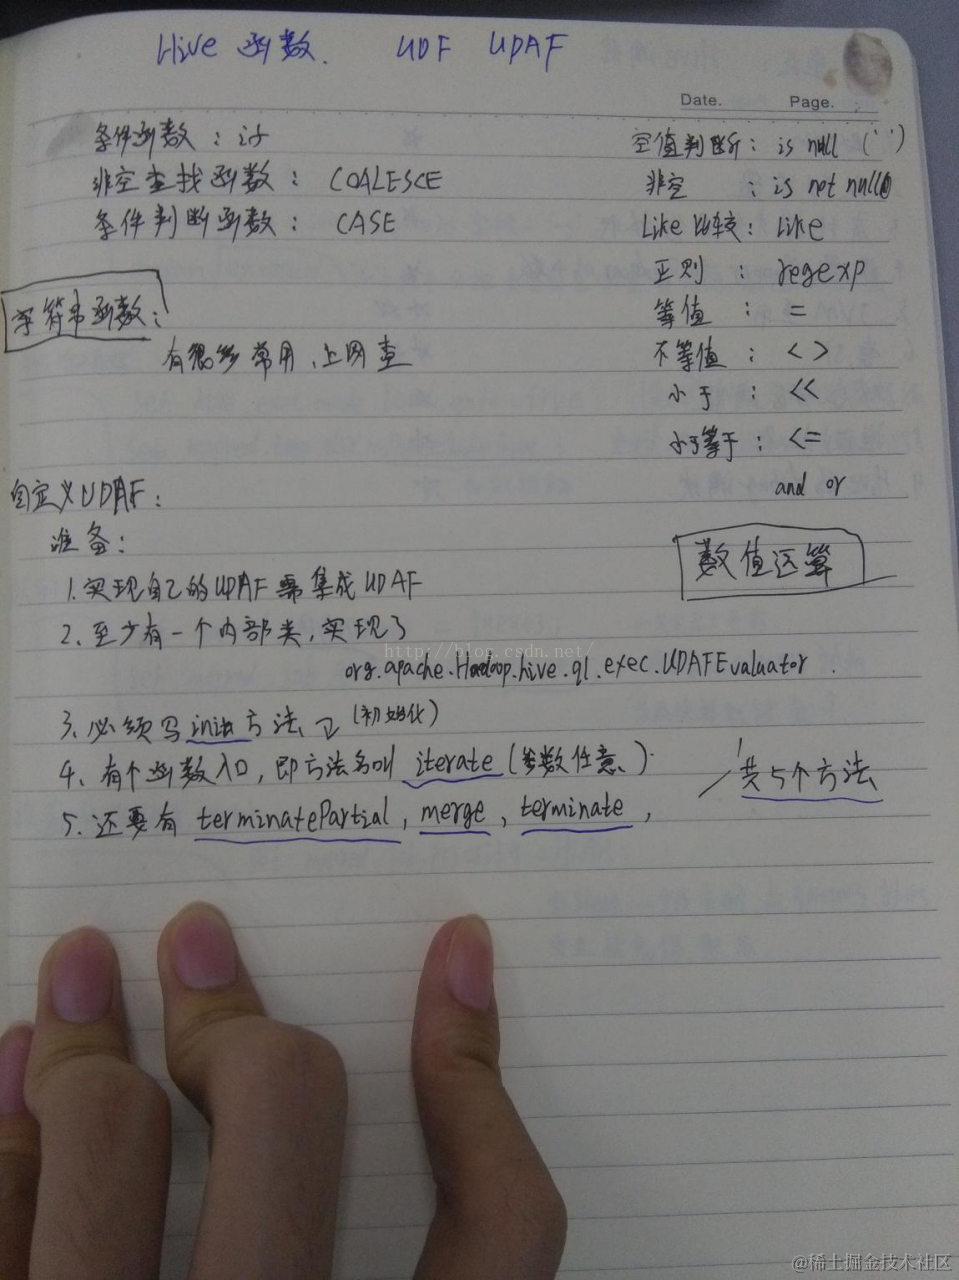 Hive 函数. UDF UDAF
Date. Page.
条件函数：if
非空查找函数：COALESCE
条件判断函数：CASE
字符串函数：
有很多常用，上网查
空值判断：is null ('')
非空：is not null()
Like 比较：Like
正则：regexp
等值：=
不等值：<>
小于：<<
小于等于：<=
and or
数值运算
自定义UDAF：
准备：
1. 实现自己的UDAF需集成UDAF
2. 至少有一个内部类，实现了
http://blog.csdn.net/
org.apache.Hadoop.hive.ql.exec.UDAFEvaluator.
3. 必须写init方法 (初始化)
4. 有个函数入口，即方法名叫 iterate (参数任意)
一共5个方法
5. 还要有 terminatePartial, merge, terminate,
@稀土掘金技术社区